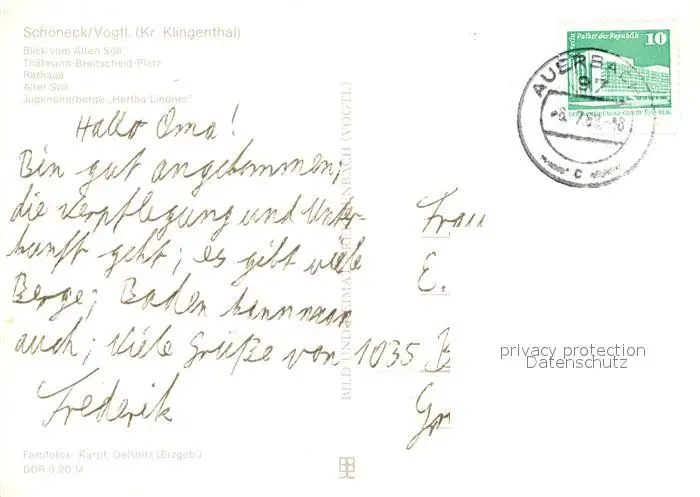 Schöneck/Vogtl. (Kr. Klingenthal)
Blick vom Alten Söll
Thälmann-Breitscheid-Platz
Rathaus
Alter Söll
Jugendherberge „Hertha Lindner“
Hallo Oma!
Bin gut angekommen;
die Verpflegung und Unter-
kunft geht; es gibt viele
Berge; Baden kann man
auch; Viele Grüße von
Frederik
Farbfotos: Karpf, Oelsnitz (Erzgeb.)
DDR 0,20 M
BILD UND HEIMAT REICHENBACH (VOGTL)
Palast der Republik
10
AUERBACH
97
c
Frau
E.
1035 B
Gr
privacy protection
Datenschutz